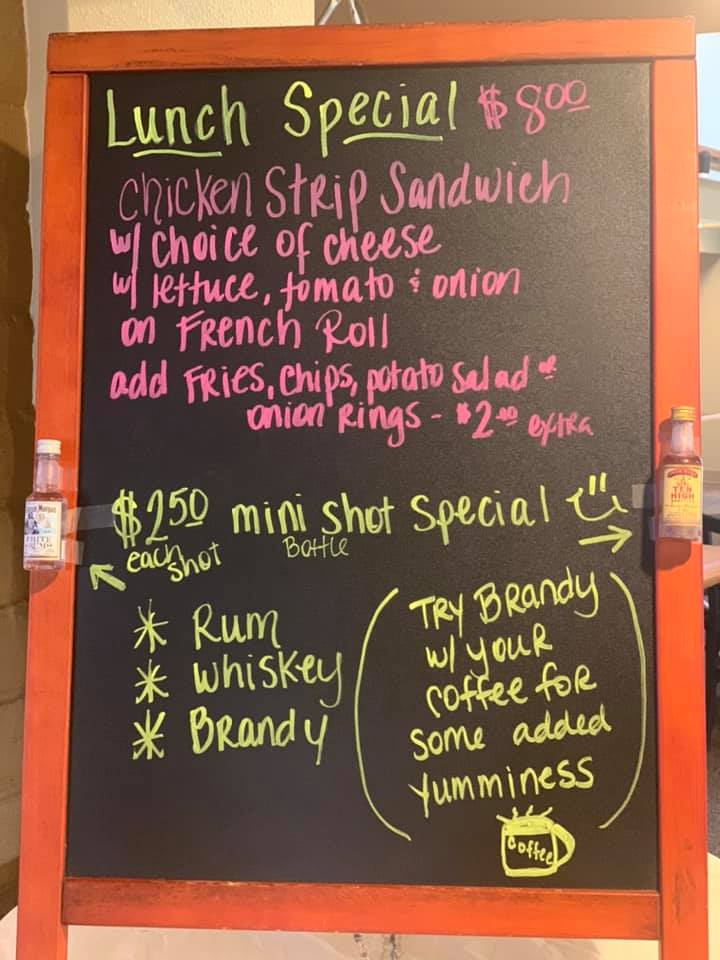 Lunch Special $8.00
Chicken Strip Sandwich
w/ choice of cheese
w/ lettuce, tomato & onion
on French Roll
add Fries, Chips, potato Salad or
onion Rings - $2.00 extra
$2.50 mini shot Special
each shot
Bottle
* Rum
* Whiskey
* Brandy
Try Brandy
w/ your
coffee for
some added
yumminess
Coffee
Morgan
WHITE
RUM
TEN
HIGH